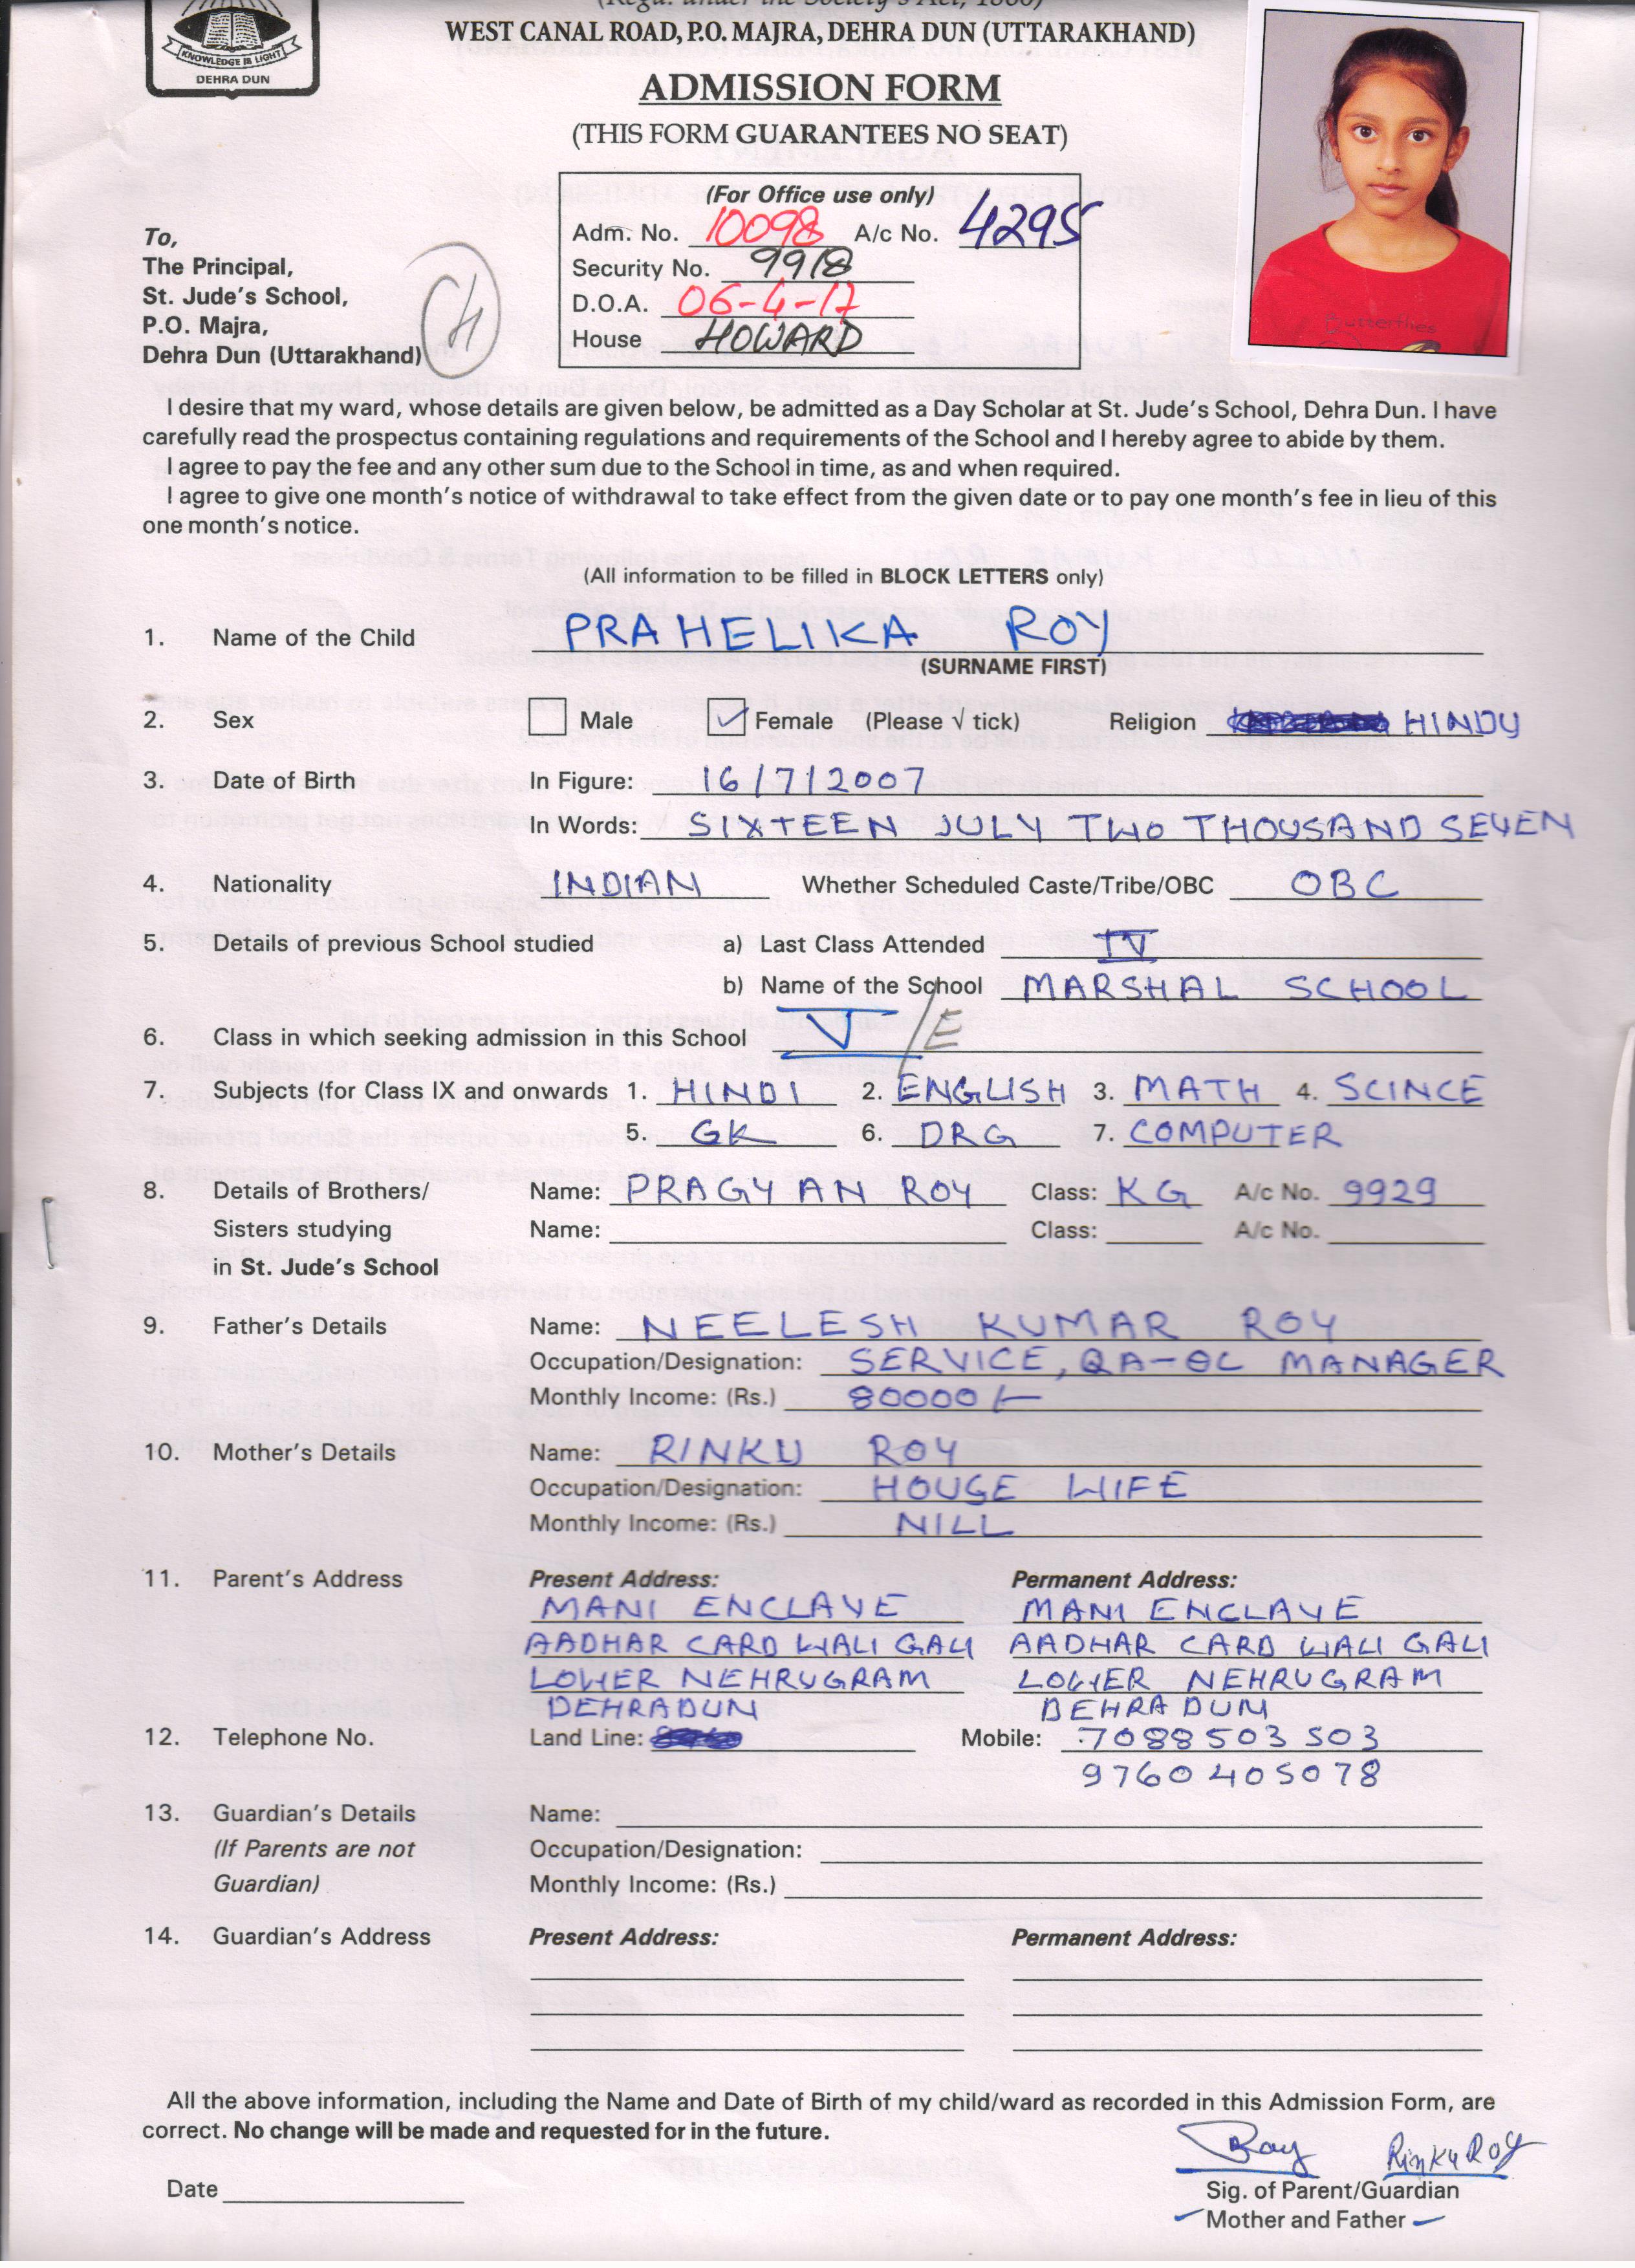 (Regd. under the Society's Act, 1860)
WEST CANAL ROAD, P.O. MAJRA, DEHRA DUN (UTTARAKHAND)
KNOWLEDGE IS LIGHT
DEHRA DUN
ADMISSION FORM
(THIS FORM GUARANTEES NO SEAT)
(For Office use only)
Adm. No. 10098 A/c No. 4295
Security No. 9918
D.O.A. 06-4-17
House HOWARD
To,
The Principal,
St. Jude's School,
P.O. Majra,
Dehra Dun (Uttarakhand)
I desire that my ward, whose details are given below, be admitted as a Day Scholar at St. Jude's School, Dehra Dun. I have
carefully read the prospectus containing regulations and requirements of the School and I hereby agree to abide by them.
I agree to pay the fee and any other sum due to the School in time, as and when required.
I agree to give one month's notice of withdrawal to take effect from the given date or to pay one month's fee in lieu of this
one month's notice.
(All information to be filled in BLOCK LETTERS only)
1. Name of the Child PRAHELIKA ROY
(SURNAME FIRST)
2. Sex Male Female (Please √ tick) Religion HINDU
3. Date of Birth In Figure: 16/7/2007
In Words: SIXTEEN JULY TWO THOUSAND SEVEN
4. Nationality INDIAN Whether Scheduled Caste/Tribe/OBC OBC
5. Details of previous School studied a) Last Class Attended IV
b) Name of the School MARSHAL SCHOOL
6. Class in which seeking admission in this School V/E
7. Subjects (for Class IX and onwards 1. HINDI 2. ENGLISH 3. MATH 4. SCINCE
5. GK 6. DRG 7. COMPUTER
8. Details of Brothers/ Name: PRAGYAN ROY Class: KG A/c No. 9929
Sisters studying Name: Class: A/c No.
in St. Jude's School
9. Father's Details Name: NEELESH KUMAR ROY
Occupation/Designation: SERVICE, QA-QC MANAGER
Monthly Income: (Rs.) 80000/-
10. Mother's Details Name: RINKU ROY
Occupation/Designation: HOUGE WIFE
Monthly Income: (Rs.) NILL
11. Parent's Address Present Address: Permanent Address:
MANI ENCLAVE MANI ENCLAVE
AADHAR CARD WALI GALI AADHAR CARD WALI GALI
LOWER NEHRUGRAM LOWER NEHRUGRAM
DEHRADUN DEHRADUN
12. Telephone No. Land Line: Mobile: 7088503503
9760405078
13. Guardian's Details Name:
(If Parents are not Occupation/Designation:
Guardian) Monthly Income: (Rs.)
14. Guardian's Address Present Address: Permanent Address:
All the above information, including the Name and Date of Birth of my child/ward as recorded in this Admission Form, are
correct. No change will be made and requested for in the future.
Roy Rinku Roy
Date Sig. of Parent/Guardian
Mother and Father